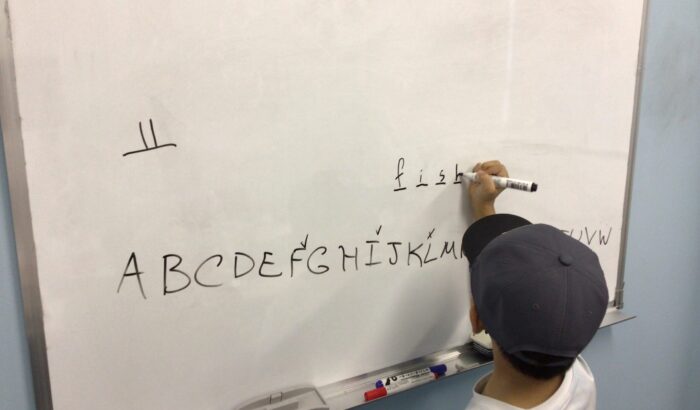 fish
ABCDEFGHIJKLM UVW